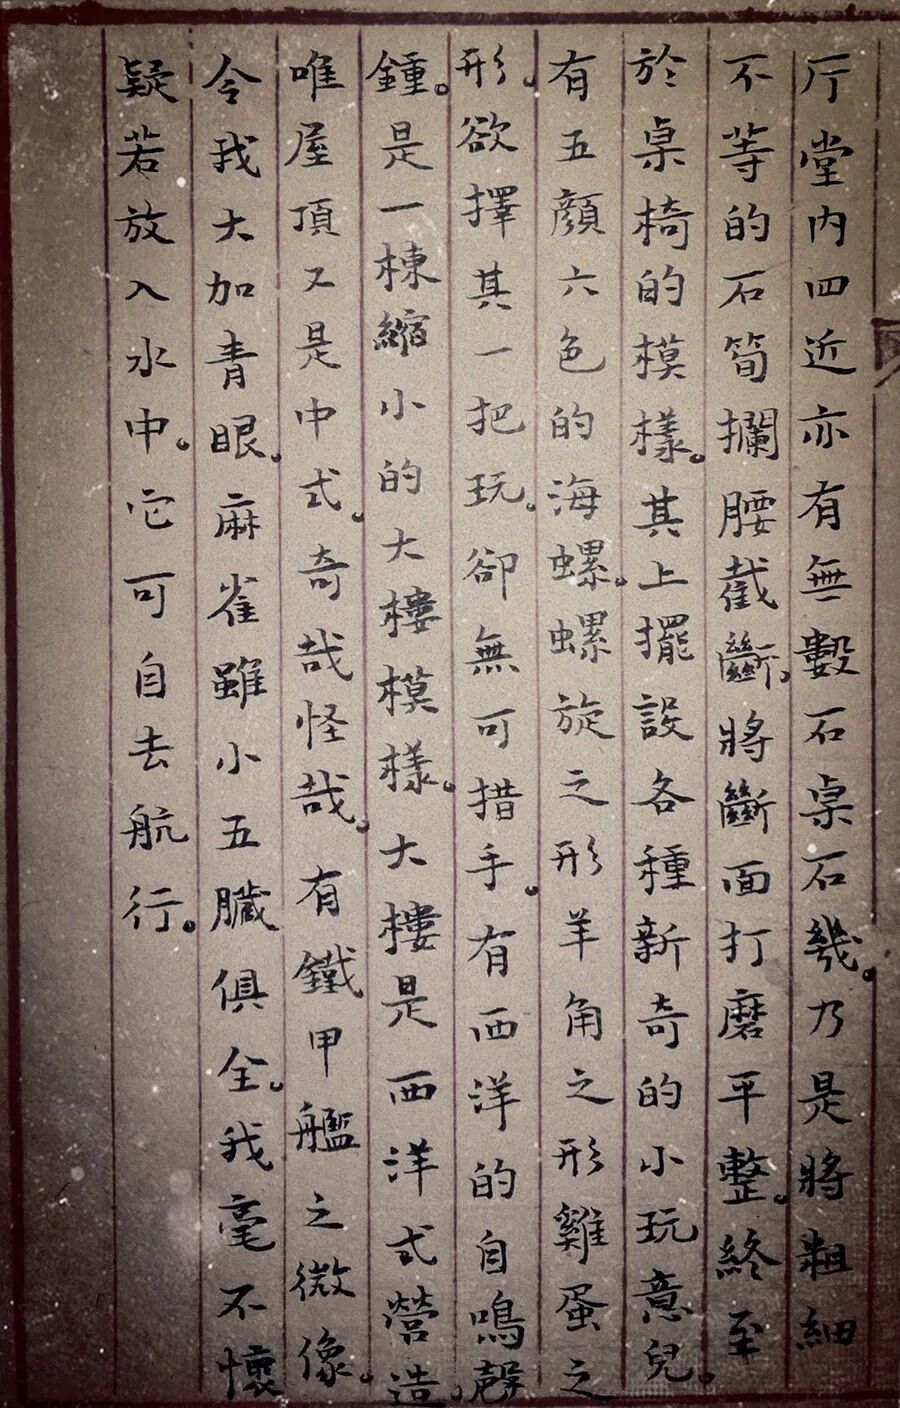 厅堂内四近亦有無數石桌石幾。乃是將粗細
不等的石筍攔腰截斷。將斷面打磨平整。終至
於桌椅的模樣。其上擺設各種新奇的小玩意兒。
有五顏六色的海螺。螺旋之形羊角之形雞蛋之
形。欲擇其一把玩。卻無可措手。有西洋的自鳴聲
鍾。是一棟縮小的大樓模樣。大樓是西洋式營造。
唯屋頂又是中式。奇哉怪哉。有鐵甲艦之微像。
令我大加青眼。麻雀雖小五臟俱全。我毫不懷
疑若放入水中。它可自去航行。